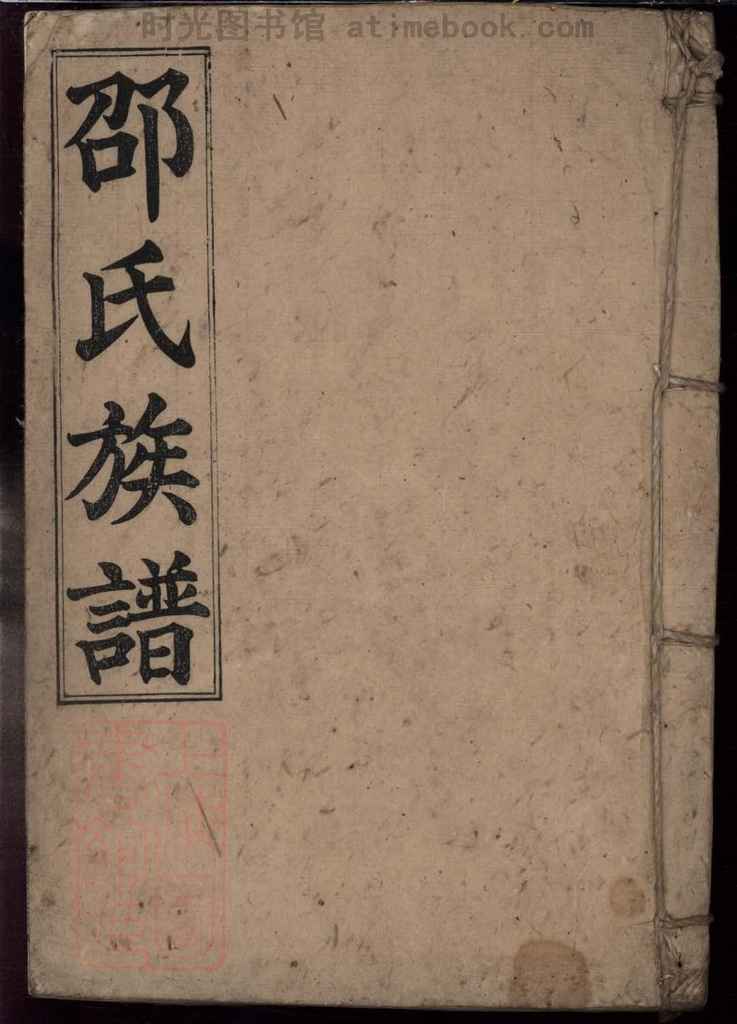 时光图书馆 atimebook.com
邵氏族譜